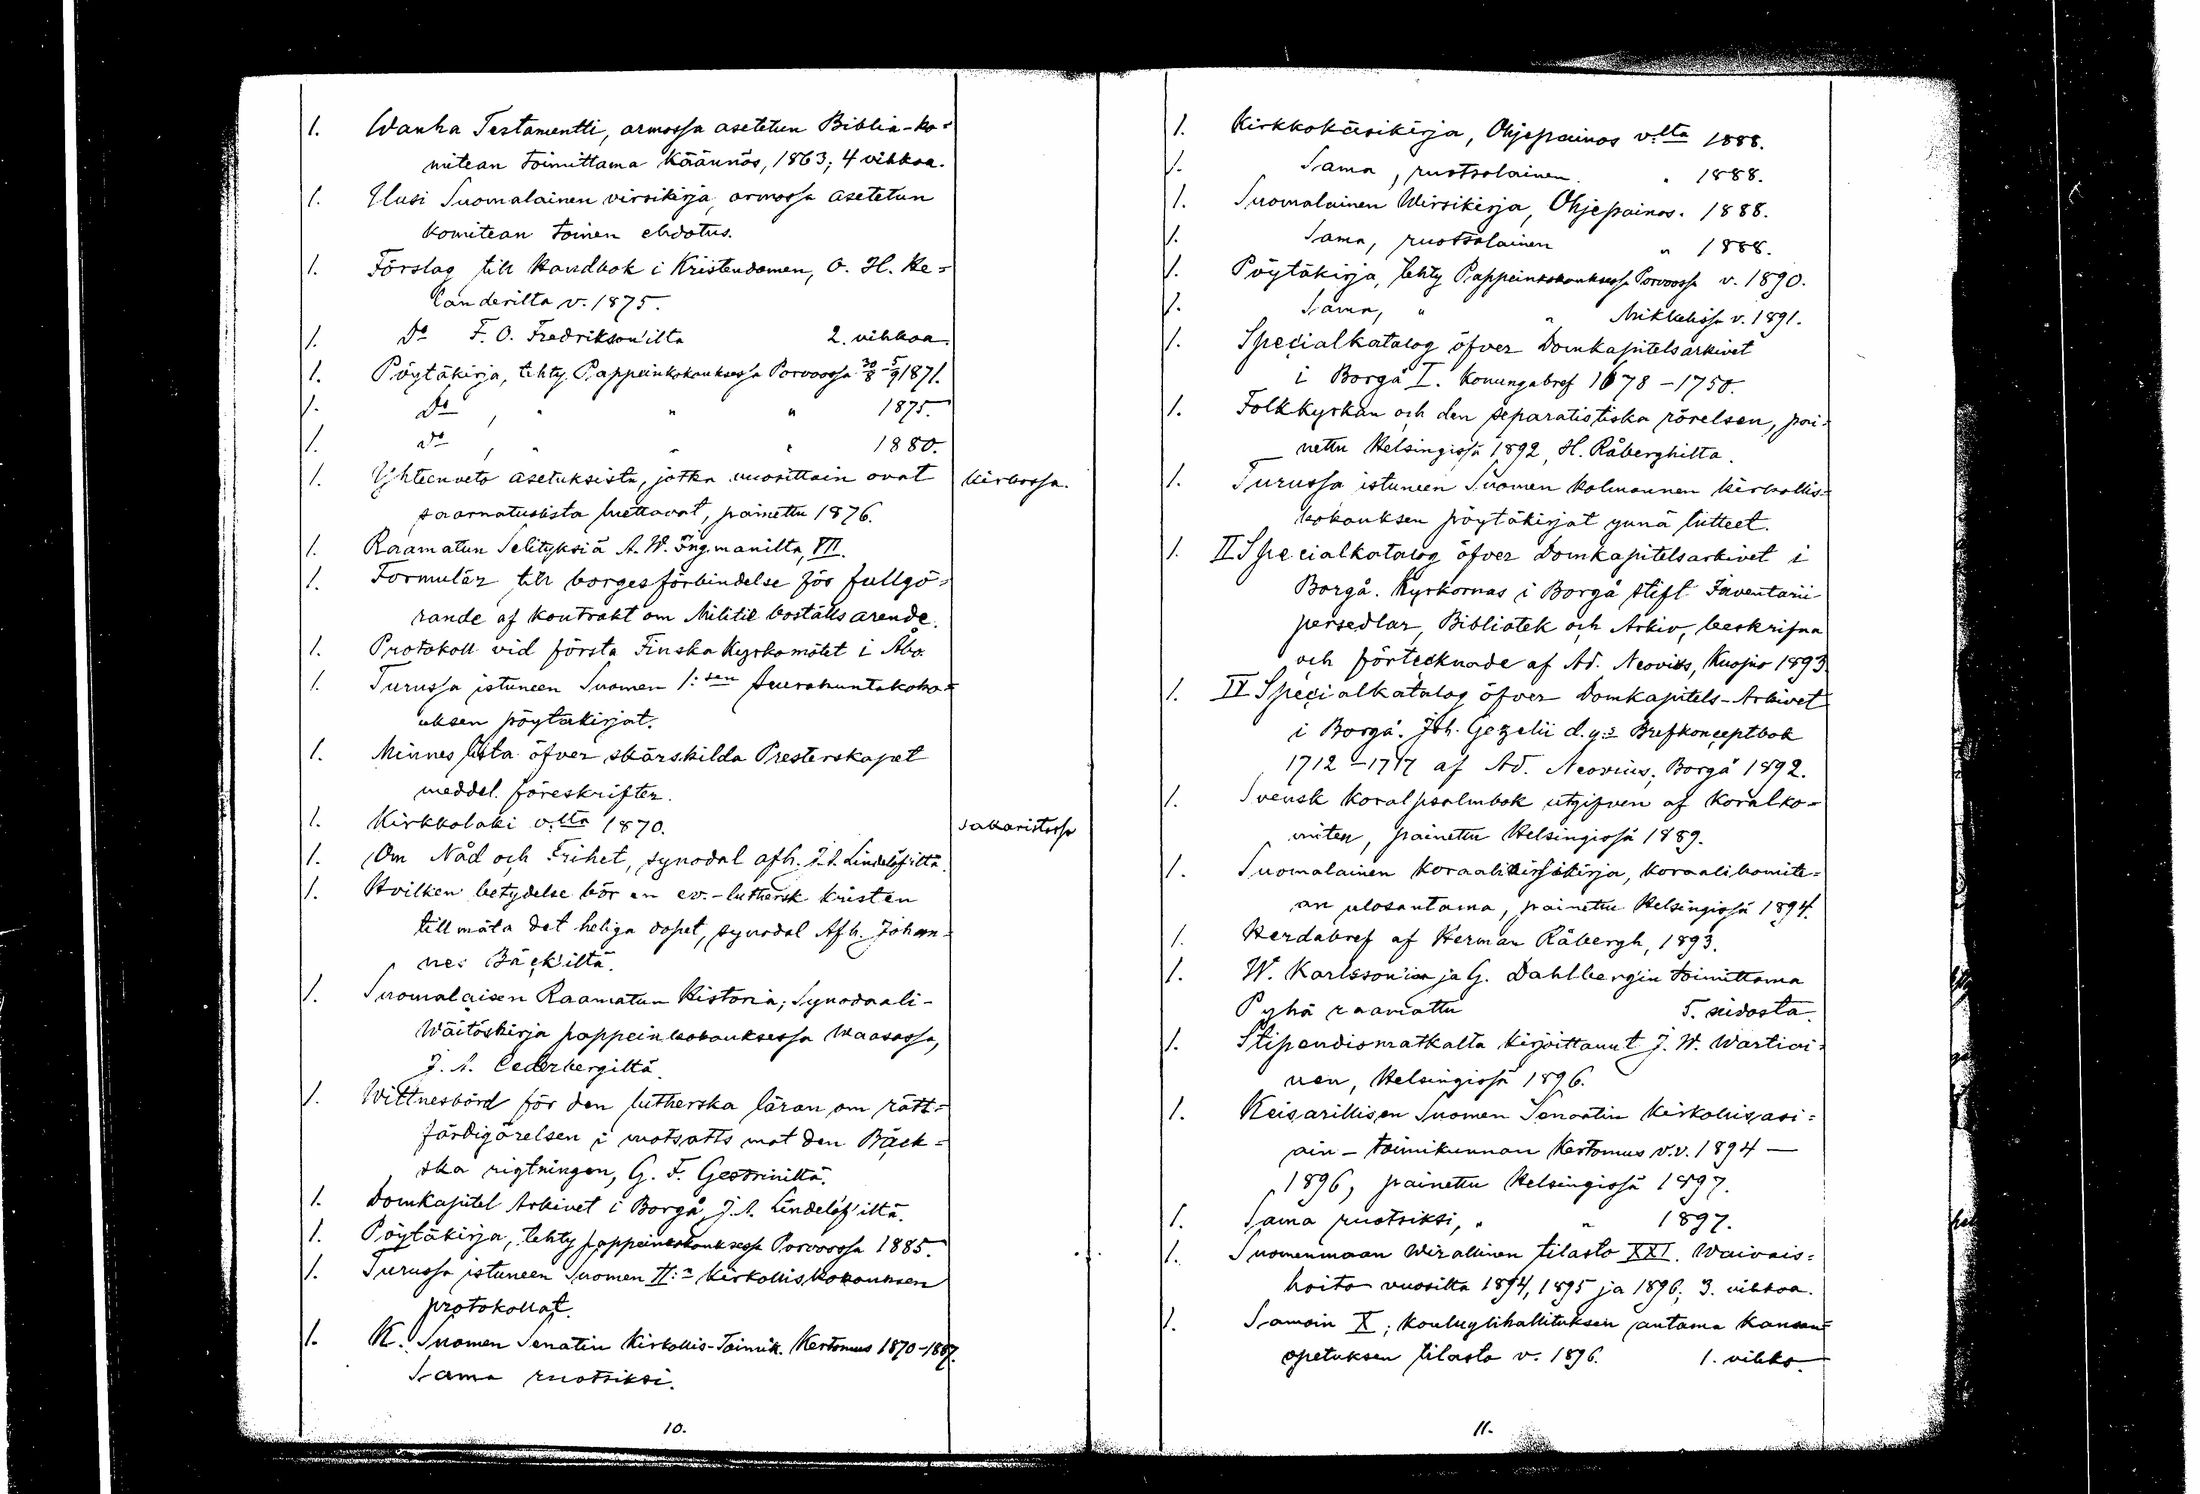 1. Wanha Testamentti, armossa asetetun Biblia-ko=
mitean toimittama käännös, 1863; 4 vihkoa.
1. Uusi Suomalainen virsikirja, armossa asetetun
komitean toinen ehdotus.
1. Förslag till Handbok i Kristendomen, O. H. He=
landerilta v. 1875.
1. Do F. O. Fredrikson'ilta 2. vihkoa.
1. Pöytäkirja, tehty Pappeinkokouksessa Porvoossa 30/8-5/9 1871.
1. Do , " " " 1875.
1. Do , " " " 1880.
1. Yhteenveto asetuksista, jotka vuosittain ovat kirkossa.
saarnatuolista luettavat, painettu 1876.
1. Raamatun Selityksiä A. W. Ingmanilta, VII.
1. Formulär till borgesförbindelse för fullgö=
rande af kontrakt om Militie boställs arende.
1. Protokoll vid första Finska Kyrkomötet i Åbo.
1. Turussa istuneen Suomen 1:sen seurakuntakoko=
uksen pöytäkirjat.
1. Minnes lista öfver skärskilda Presterskapet
meddel. föreskrifter.
1. Kirkkolaki v:lta 1870. sakaristossa
1. Om Nåd och Frihet, synodal afh. J. A. Lindelöf'iltä.
1. Hvilken betydelse bör en ev.-luthersk kristen
tillmäta det heliga dopet, synodal Afh. Johan=
nes Bäck'iltä.
1. Suomalaisen Raamatun Historia; Synodaali-
Wäitöskirja pappeinkokouksessa Waasassa,
J. A. Cederbergiltä.
1. Wittnesbörd för den lutherska läran om rätt=
färdigörelsen i motsatts mot den Bäck=
ska rigtningen, G. F. Gestriniltä.
1. Domkapitel Arkivet i Borgå, J. A. Lindelöf'iltä.
1. Pöytäkirja, tehty pappeinkokouksessa Porvoossa 1885.
1. Turussa istuneen Suomen II:n Kirkolliskokouksen
protokollat.
1. K. Suomen Senatin Kirkollis-Toimik. Kertomus 1870-1887.
Sama ruotsiksi.
10.
1. Kirkkokäsikirja, Ohjepainos v:lta 1888.
1. Sama, ruotsalainen " 1888.
1. Suomalainen Wirsikirja, Ohjepainos. 1888.
1. Sama, ruotsalainen " 1888.
1. Pöytäkirja, tehty Pappeinkokouksessa Porvoossa v. 1890.
1. Sama, " " Mikkelissä v. 1891.
1. Specialkatalog öfver Domkapitelsarkivet
i Borgå I. Konungabref 1678-1750.
1. Folkkyrkan och den separatistiska rörelsen, pai=
nettu Helsingissä 1892, H. Råberghilta.
1. Turussa istuneen Suomen kolmannen kirkollis=
kokouksen pöytäkirjat ynnä liitteet.
1. II Specialkatalog öfver Domkapitelsarkivet i
Borgå. Kyrkornas i Borgå stift Inventarii-
persedlar, Bibliotek och Arkiv, beskrifna
och förtecknade af Ad. Neovius, Kuopio 1893.
1. IV Specialkatalog öfver Domkapitels-Arkivet
i Borgå. Joh. Gezelii d.y:s Brefkonceptbok
1712-1717 af Ad. Neovius; Borgå 1892.
1. Svensk koralpsalmbok utgifven af koralko=
miten, painettu Helsingissä 1889.
1. Suomalainen koraalivirsikirja, koraalikomite=
an ulosantama, painettu Helsingissä 1894.
1. Herdabref af Herman Råbergh, 1893.
1. W. Karlsson'ian ja G. Dahlberg'in toimittama
Pyhä raamattu 5. sidosta.
1. Stipendiomatkalta kirjoittanut J. W. Wartiai=
nen, Helsingissä 1896.
1. Keisarillisen Suomen Senaatin kirkollisasi=
ain - toimikunnan Kertomus v.v. 1894 —
1896, painettu Helsingissä 1897.
1. Sama ruotsiksi, " " 1897.
1. Suomenmaan Wirallinen tilasto XXI. Waivais=
hoito vuosilta 1894, 1895 ja 1896; 3. vihkoa.
1. Samoin X; kouluylihallituksen antama kansan=
opetuksen tilasto v. 1896. 1. vihko.
11.